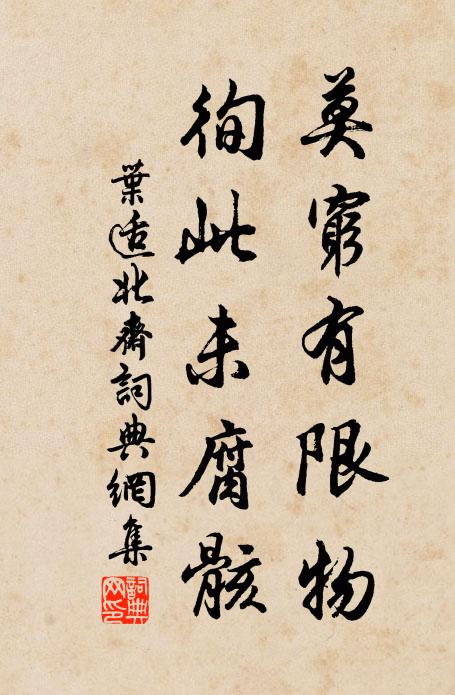 莫窮有限物
徇此未腐骸
葉适北齋詞典網集
詞典網印